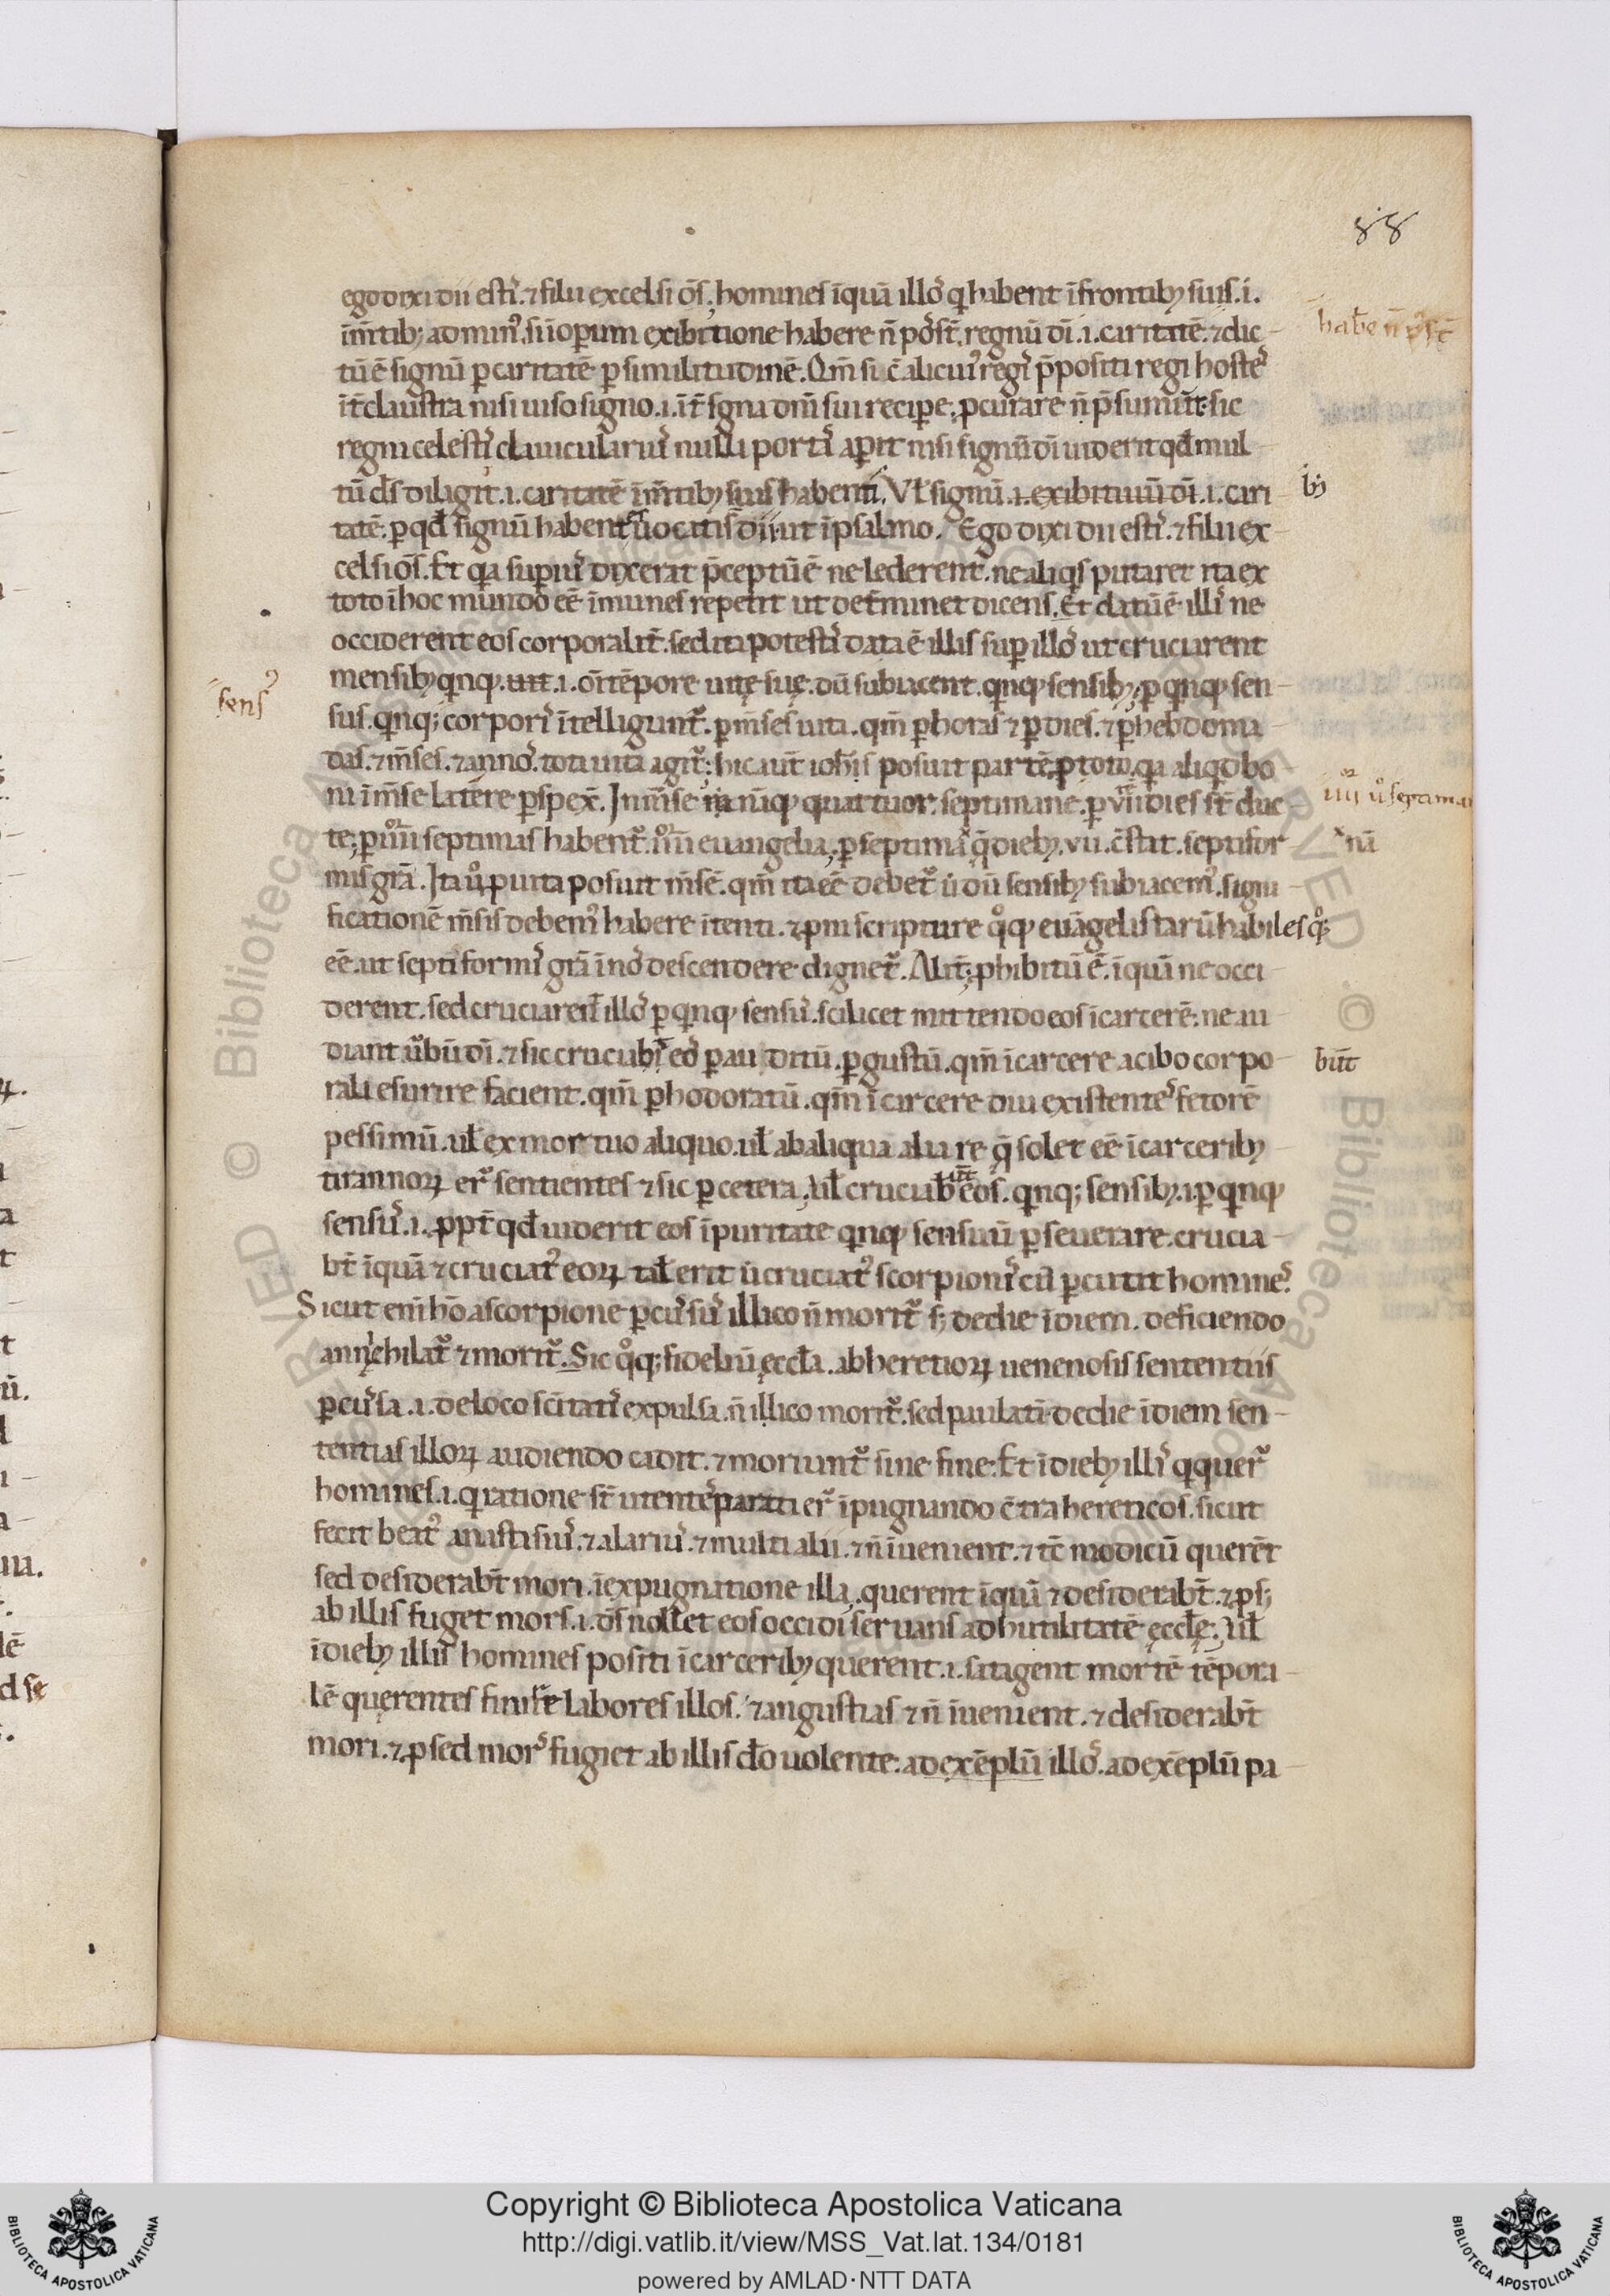 88
ego dixi dii estis. ⁊ filii excelsi oms̄. homines īquā illos̓ q̓ habent ī frontib; suis. i.
habe n̄ poss̄t
tū ē signū p caritatē p similitudinē. Qm̄ sic̄ alicui᾿ regis p̄positi regi hostes̓
īt̄ claustra nisi uiso signo. i. īt̄ signa dn̄i sui recipe. pcurare n̄ p̄sumūt. sic
regni celestis̓ clauicularius̓ nulli portas̓ apit nisi signū dī uiderit qđ mul
tū ds̄ diligit. i. caritatē ī m̄tib; suis habenti. Vł signū. i. exibitiuū dī. i. cari
b;
tatē. p qđ signū habentes uocatis dii ut ī psalmo. Ego dixi dii estis̓. ⁊ filii ex
celsi oms̄. Et q̓a superius̓ dixerat p̄ceptū ē ne lederent. ne aliq̓s putaret ita ex
toto ī hoc mundo eē īmunes repetit ut det̄minet dicens. Et datū ē illis̓ ne
occiderent eos corporalit̄. sed ita potestas̓ data ē illis sup illos̓ ut cruciarent
mensib; q̓nq;. i. om̄ī tēpore uitę suę. dū subiacent. q̓nq; sensib;. p q̓nq; sen
sens᾿
sus. q̓nq; corporis̓ ītelligunt̄. p m̄ses uita. qm̄ p horas ⁊ p dies. ⁊ p hebdoma
das. ⁊ m̄ses. ⁊ annos̓. tota uita agit̄. hic aūt ioh̄is posuit partē p toto. q̓a aliq̓d bo
ni ī m̄se latere pspex̄. In m̄se
quattuor. septimane. p vii dies st̄ duc
te. p iiii septimas habent̄. iiii euangelia. p septimā q̄ dieb; .vii. c̄stat. septifor
nā
mis grā. Ita ů. p uita posuit m̄sē. qm̄ ita eē debet̄ ů dū sensib; subiacem᾿. signi
ficationē m̄sis debem᾿ habere ītenti. ⁊ p ni scripture q̊q; euāgelistarū habiles q̊;
eē. ut septiformis̓ grā ī nos̓ descendere dignet̄. Alit̄. phibitū ē. īquā ne occi
derent. sed cruciarent̄ illos̓ p q̓nq; sensus̓. scilicet mittendo eos ī carcerē. ne au
diant ůbū dī. ⁊ sic cruciab̄t eos̓ p auditū. p gustū. qm̄ ī carcere a cibo corpo
būt
rali esurire facient. qm̄ p hodoratū. qm̄ ī carcere diu existentes̓ fetorē
pessimū. uł ex mortuo aliquo. uł ab aliqua alia re q̄ solet eē ī carcerib;
tirannoꝝ er̄ sentientes ⁊ sic p cetera. Vł cruciab̄t eos. q̓nq; sensib;. i. p q̓nq;
sensus̓. i. ppt̄ qđ uiderit eos ī puritate q̓nq; sensuū pseuerare. crucia
bt̄ īquā ⁊ cruciat᾿ eoꝝ tal erit ů cruciat᾿ scorpionis̓ cū pcutit homines̓.
Sicut enī hō a scorpione pcussus̓ illico n̄ morit̄ s; de die ī diem. deficiendo
annichilat̄ ⁊ morit̄. Sic q̊q; fideliū ęccła. ab heretioꝝ uenenosis sententiis
pcussa. i. de loco scītatis̓ expulsa. n̄ illico morit̄. sed paulatī de die ī diem sen
tentias illoꝝ audiendo cadit. ⁊ moriunt̄ sine fine. Et ī dieb; illis̓ q̓quer̄
homines. i. q̓ ratione st̄ utentes̓ parati er̄ īpugnando c̄tra hereticos. sicut
fecit beat᾿ anastasius̓. ⁊ alarius̓. ⁊ multi alii. ⁊ n̄ īuenient. ⁊ tc̄ modicū querēt
sed desiderab̄t mori. ī expugnatione illa. querent īquā ⁊ desiderab̄t. ⁊ ps;
ab illis fuget mors. i. ds̄ nollet eos occidi seruans ad hutilitatē ęccłę. Vł
ī dieb; illis homines positi ī carcerib; querent. i. satagent mortē tēpora
lē querentes finire labores illos. ⁊ angustias ⁊ n̄ īuenient. ⁊ desiderab̄t
mori. ⁊ p sed mors̓ fugiet ab illis dō uolente. ad exēplū illos̓. ad exēplū pa
Copyright © Biblioteca Apostolica Vaticana
http://digi.vatlib.it/view/MSS_Vat.lat.134/0181
powered by AMLAD·NTT DATA